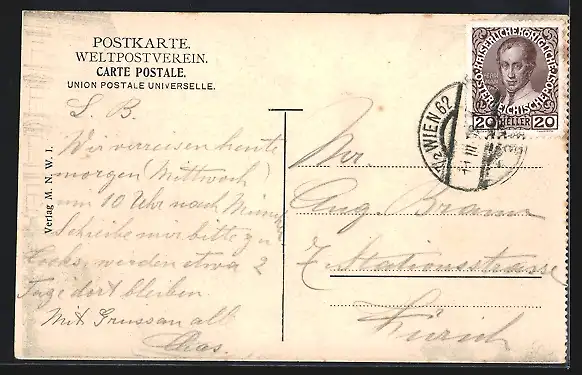 POSTKARTE.
WELTPOSTVEREIN.
CARTE POSTALE.
UNION POSTALE UNIVERSELLE.
Verlag M. N. W. I.
L. B.
Wir verreisen heute
morgen (Mittwoch)
um 10 Uhr nach
Schreibe mir bitte
werden etwa 2
Tage dort bleiben.
Mit Gruss an all
Chas.
KAISERLICHE KÖNIGLICHE
ÖSTERREICHISCHE POST
20 HELLER 20
WIEN 62
III
Mr.
Aug. Braun
7 Stationsstrasse
Zürich